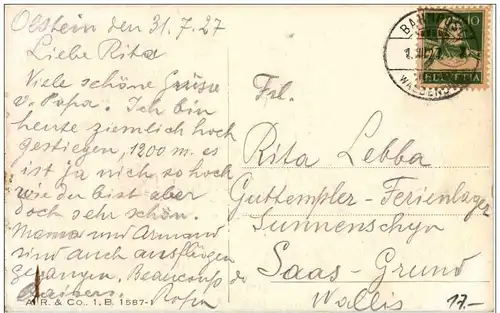 Olstein den 31.7.27
Liebe Rita
Viele schöne Grüsse
v. Papa. Ich bin
heute ziemlich hoch
gestiegen, 1200 m. es
ist ja nich so hoch
wie du bist aber
doch sehr schön.
Mama und Armand
sind auch ausflügen
gegangen. Beaucoup de
Baisers. Papa
A. R. & Co., 1. B. 1587-I
BA
WALDENB
10
HELVETIA
Frl.
Rita Lebba
Guttempler-Ferienlager
Sunnenschyn
Saas-Grund
Wallis
17.-